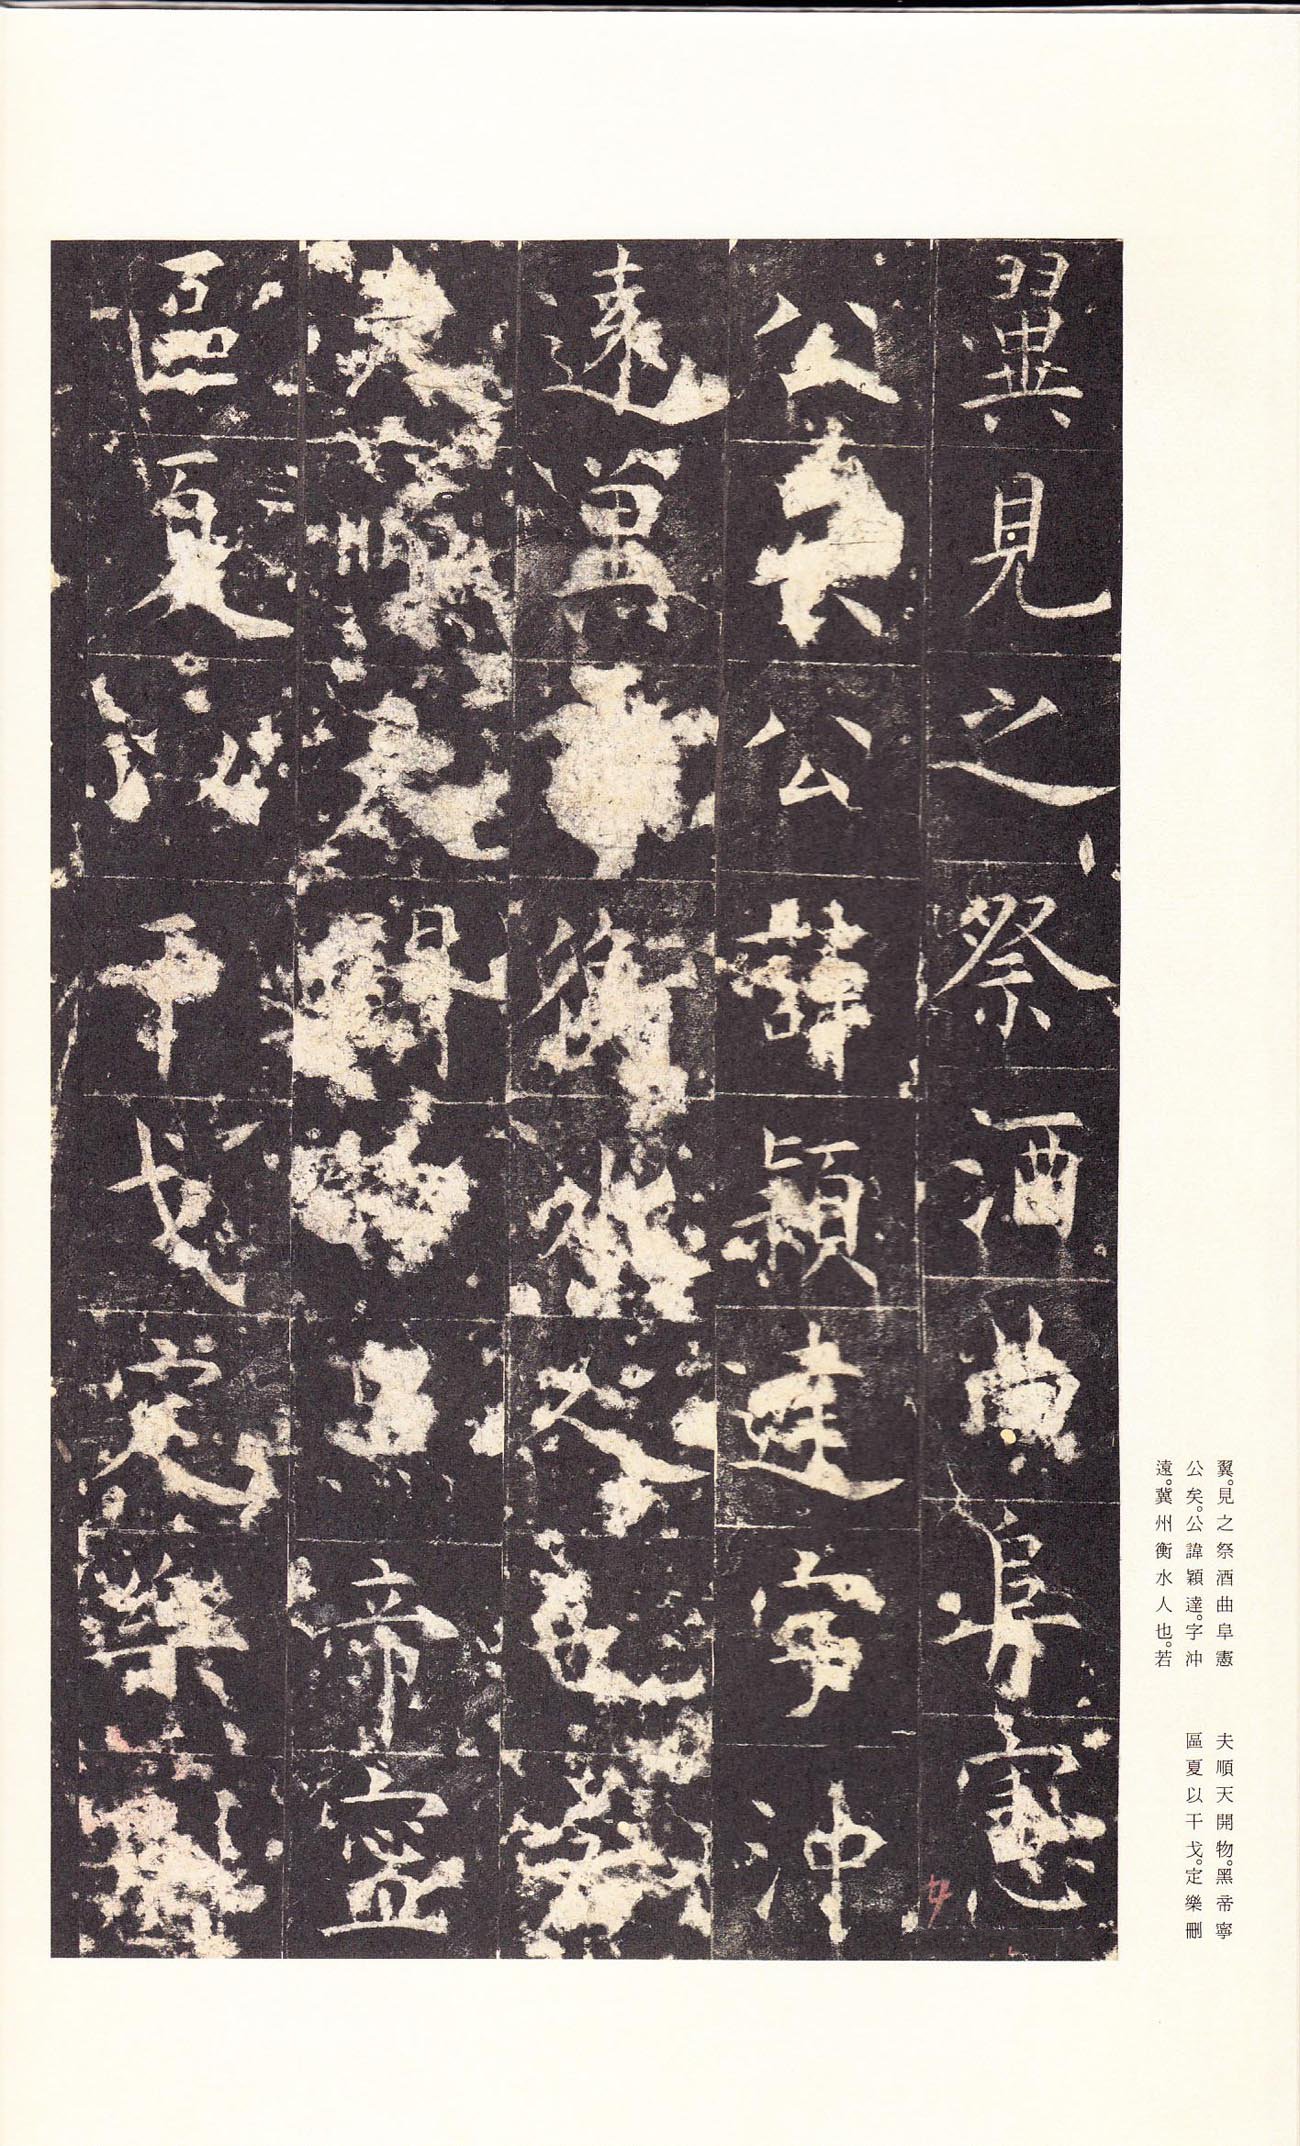 翼見之祭酒曲阜憲
公矣公諱穎達字沖
遠冀州衡水人也若
夫順天開物黑帝寧
區夏以干戈定樂刪
翼。見之祭酒曲阜憲
公矣。公諱穎達。字沖
遠。冀州衡水人也。若
夫順天開物。黑帝寧
區夏以干戈。定樂刪